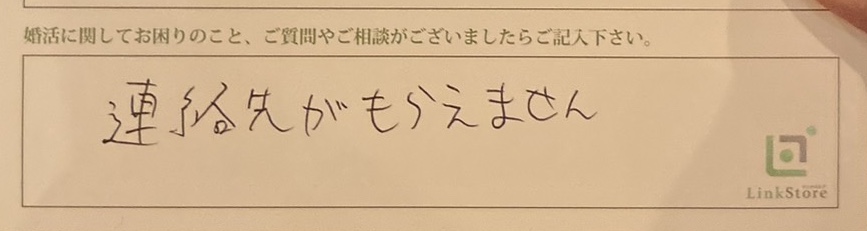 婚活に関してお困りのこと、ご質問やご相談がございましたらご記入下さい。
連絡先がもらえません
LinkStore